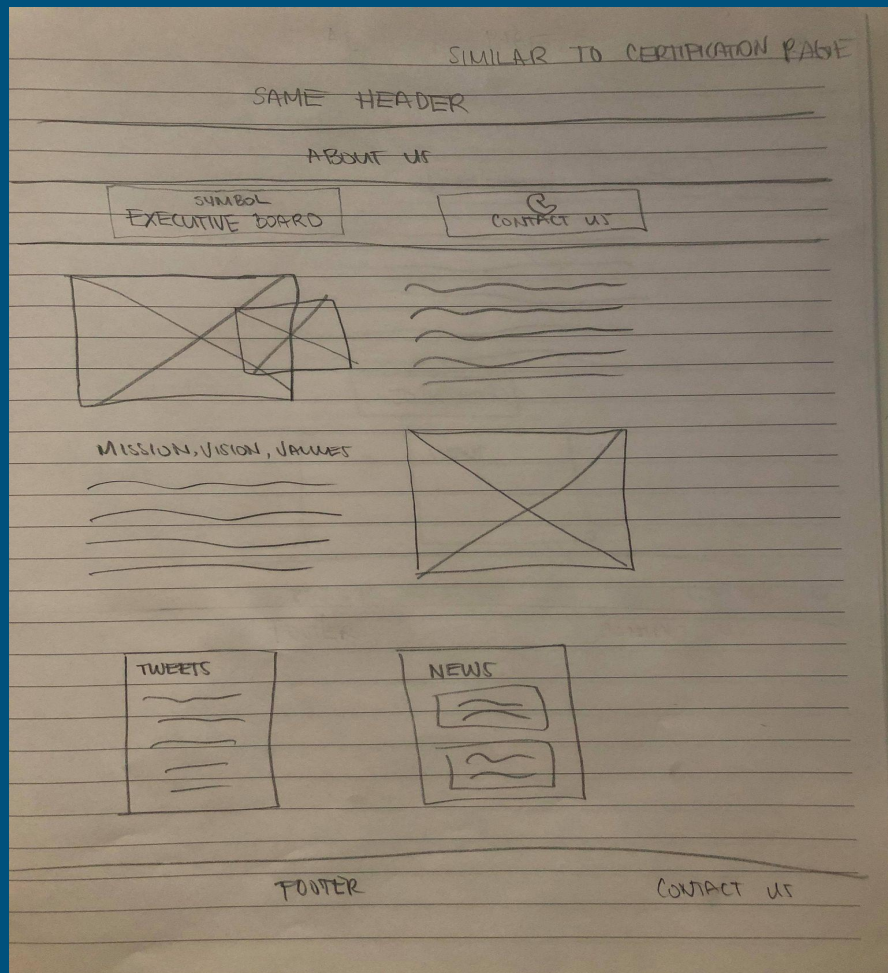 SIMILAR TO CERTIFICATION PAGE
SAME HEADER
ABOUT US
SYMBOL
EXECUTIVE BOARD
CONTACT US
MISSION, VISION, VALUES
TWEETS
NEWS
FOOTER
CONTACT US